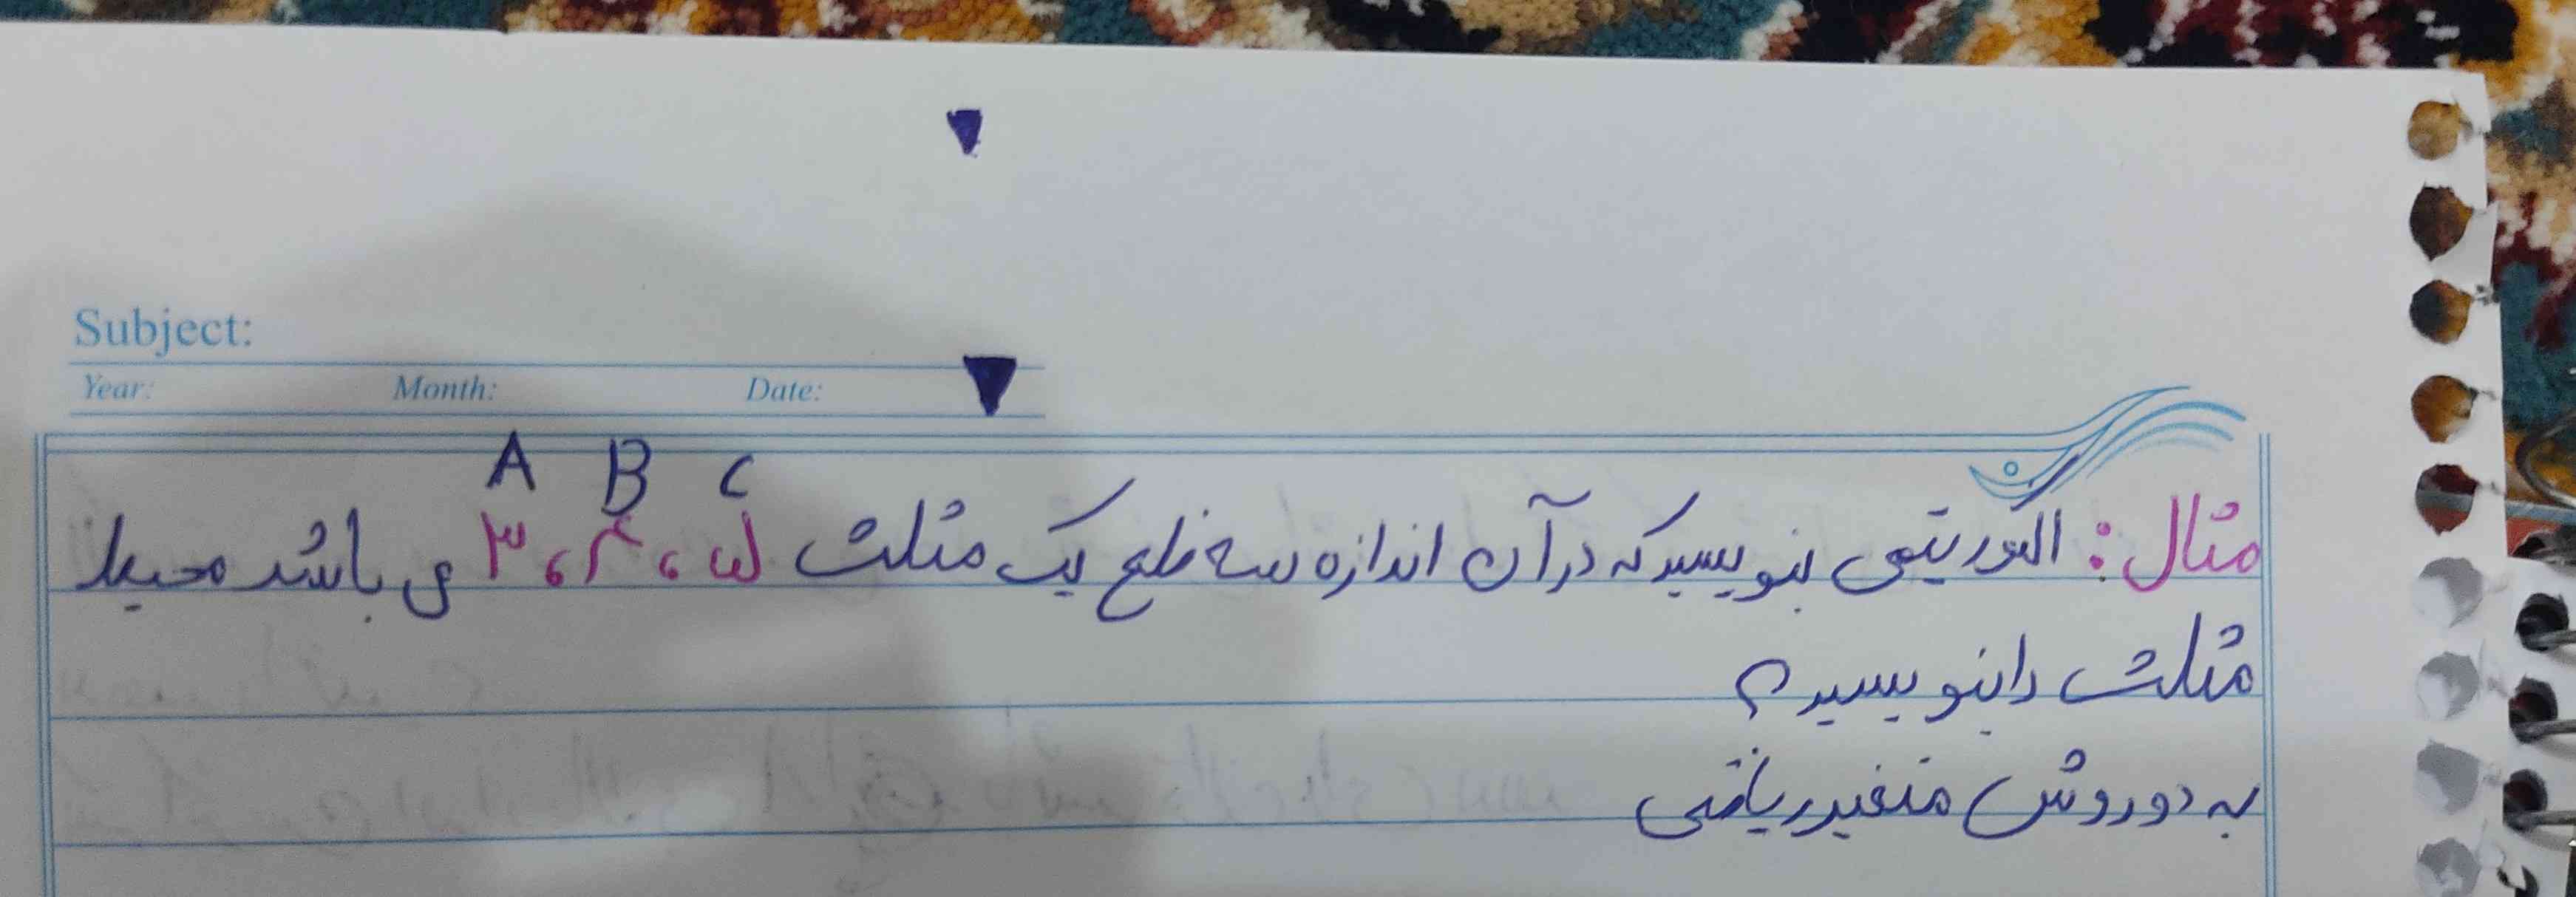 Subject:
Year: Month: Date:
A B C
مثال: الگوریتمی بنویسید که در آن اندازه سه ضلع یک مثلث ۵، ۴، ۳ می باشد محیط
مثلث را بنویسید؟
به دو روش متغیر ریاضی